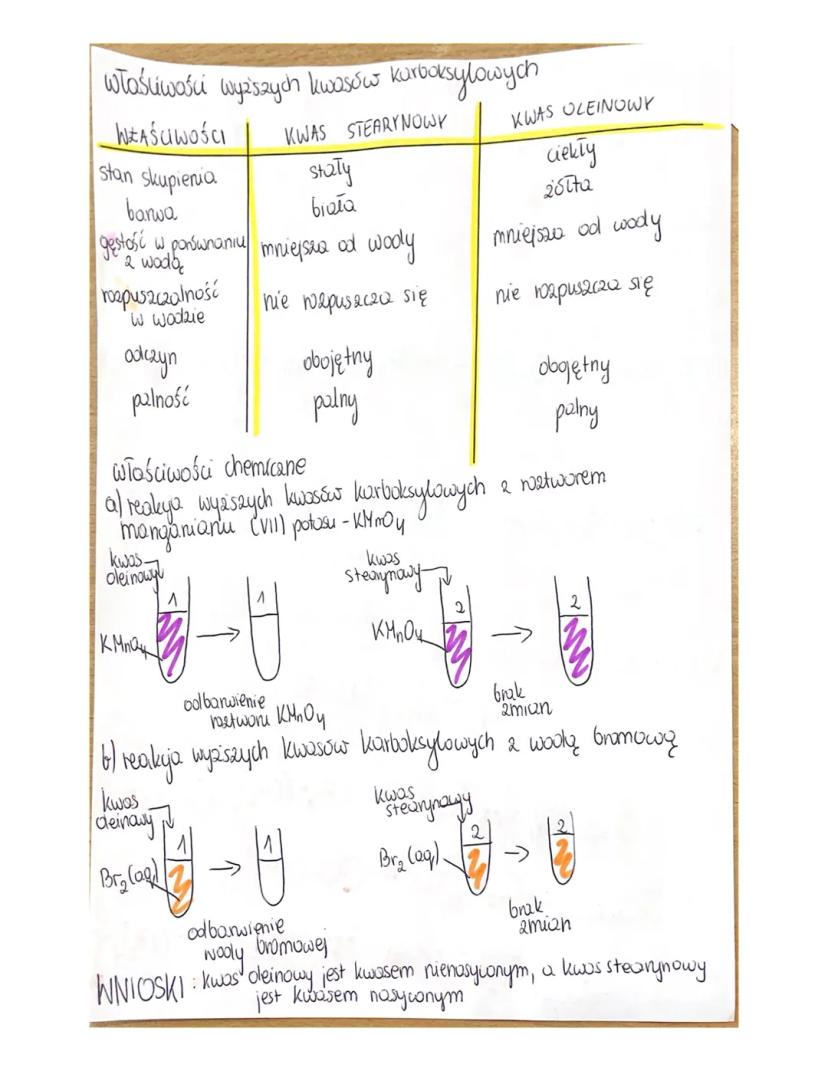 właściwości wyższych kwasów karboksylowych
WŁAŚCIWOŚCI KWAS STEARYNOWY KWAS OLEINOWY
stan skupienia stały ciekły
barwa biała żółta
gęstość w porównaniu z wodą mniejsza od wody mniejsza od wody
rozpuszczalność w wodzie nie rozpuszcza się nie rozpuszcza się
odczyn obojętny obojętny
palność palny palny
właściwości chemiczne
a) reakcja wyższych kwasów karboksylowych z roztworem
manganianu (VII) potasu - KMnO4
kwas
oleinowy
1 1
KMnO4
odbarwienie
roztworu KMnO4
kwas
stearynowy
2 2
KMnO4
brak
zmian
b) reakcja wyższych kwasów karboksylowych z wodą bromową
kwas
oleinowy
1 1
Br2(aq)
odbarwienie
wody bromowej
kwas
stearynowy
2 2
Br2(aq)
brak
zmian
WNIOSKI: kwas oleinowy jest kwasem nienasyconym, a kwas stearynowy
jest kwasem nasyconym